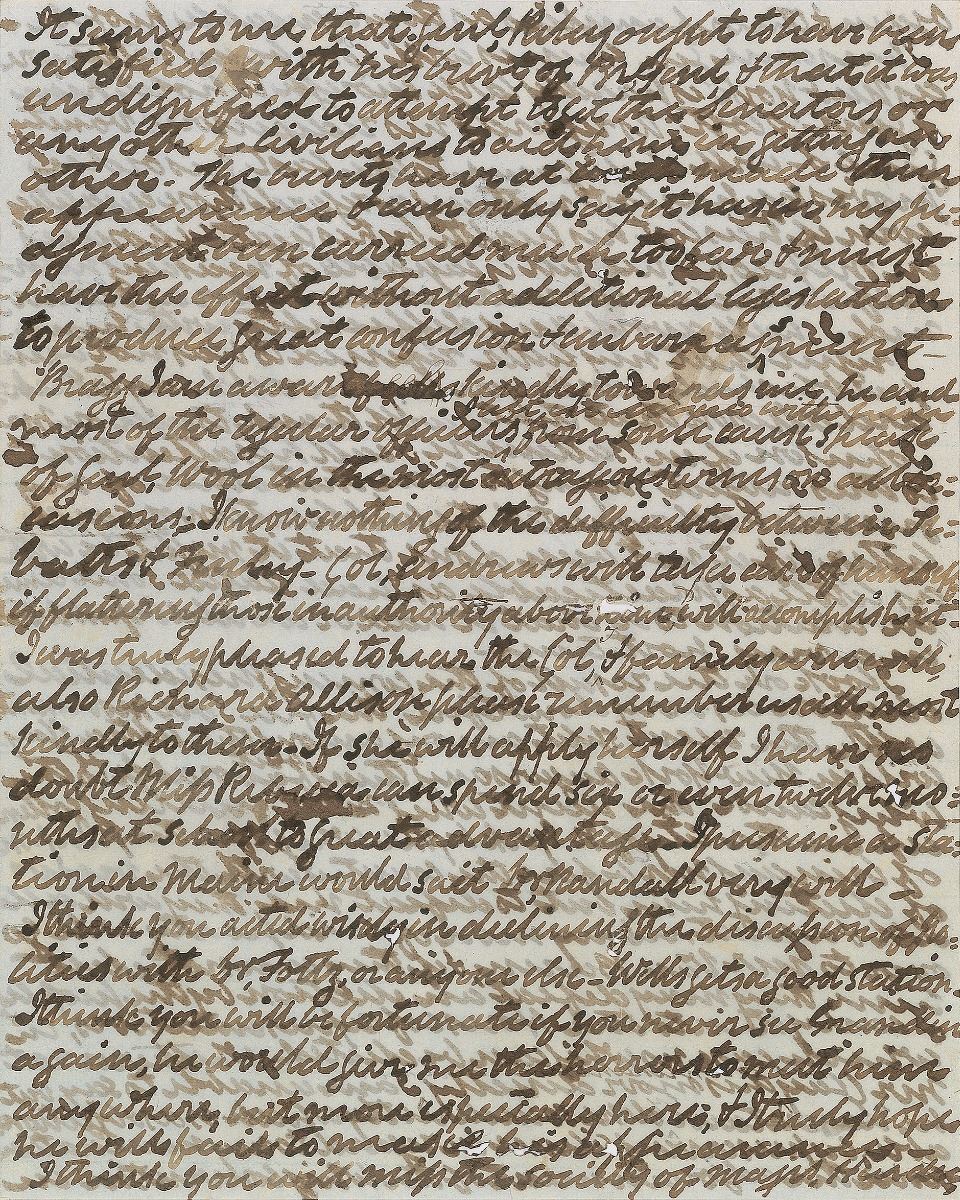 It seems to me, that Genl, Riley ought to have been
satisfied with his brevt of Br. Genl & that it was
undignified to attempt to get the Senators or
any other civilians to aid him in getting an-
other. The brevts have at length made their
appearance I can only say it has in my ju-
dgment been carried much too far & must
have the effect without additional legislation
to produce great confusion & embarrassment
Bragg I am aware kindly towards me, he and
most of the regular officers from some cause speak
of Genl, Wool in the most outrageous terms on all oc-
casions. I know nothing of the difficulty between Ri-
betts & Finley - Col, Andrews will take care of himself
if flattering those in authority above him will accomplish it.
I was truly pleased to hear the Col, & family were well,
also Richard & Allison please remember us all most
kindly to them. If she will apply herself I have no
doubt Miss Rebecca can spend six or even twelve mo-
nths at school to great advantage. I presume a sta-
tion in Maine would suit Dr, Randall very well -
I think you acted wisely in declining the discussion of po-
litics with Dr, Foltz, or anyone else - Wells gets a good station.
I think you will be fortunate if you never see
again, he would give me the horrors to meet him
any where, but more especially here, & I truly hope
he will fail to make his appearance -
I think you will miss the society of majr,